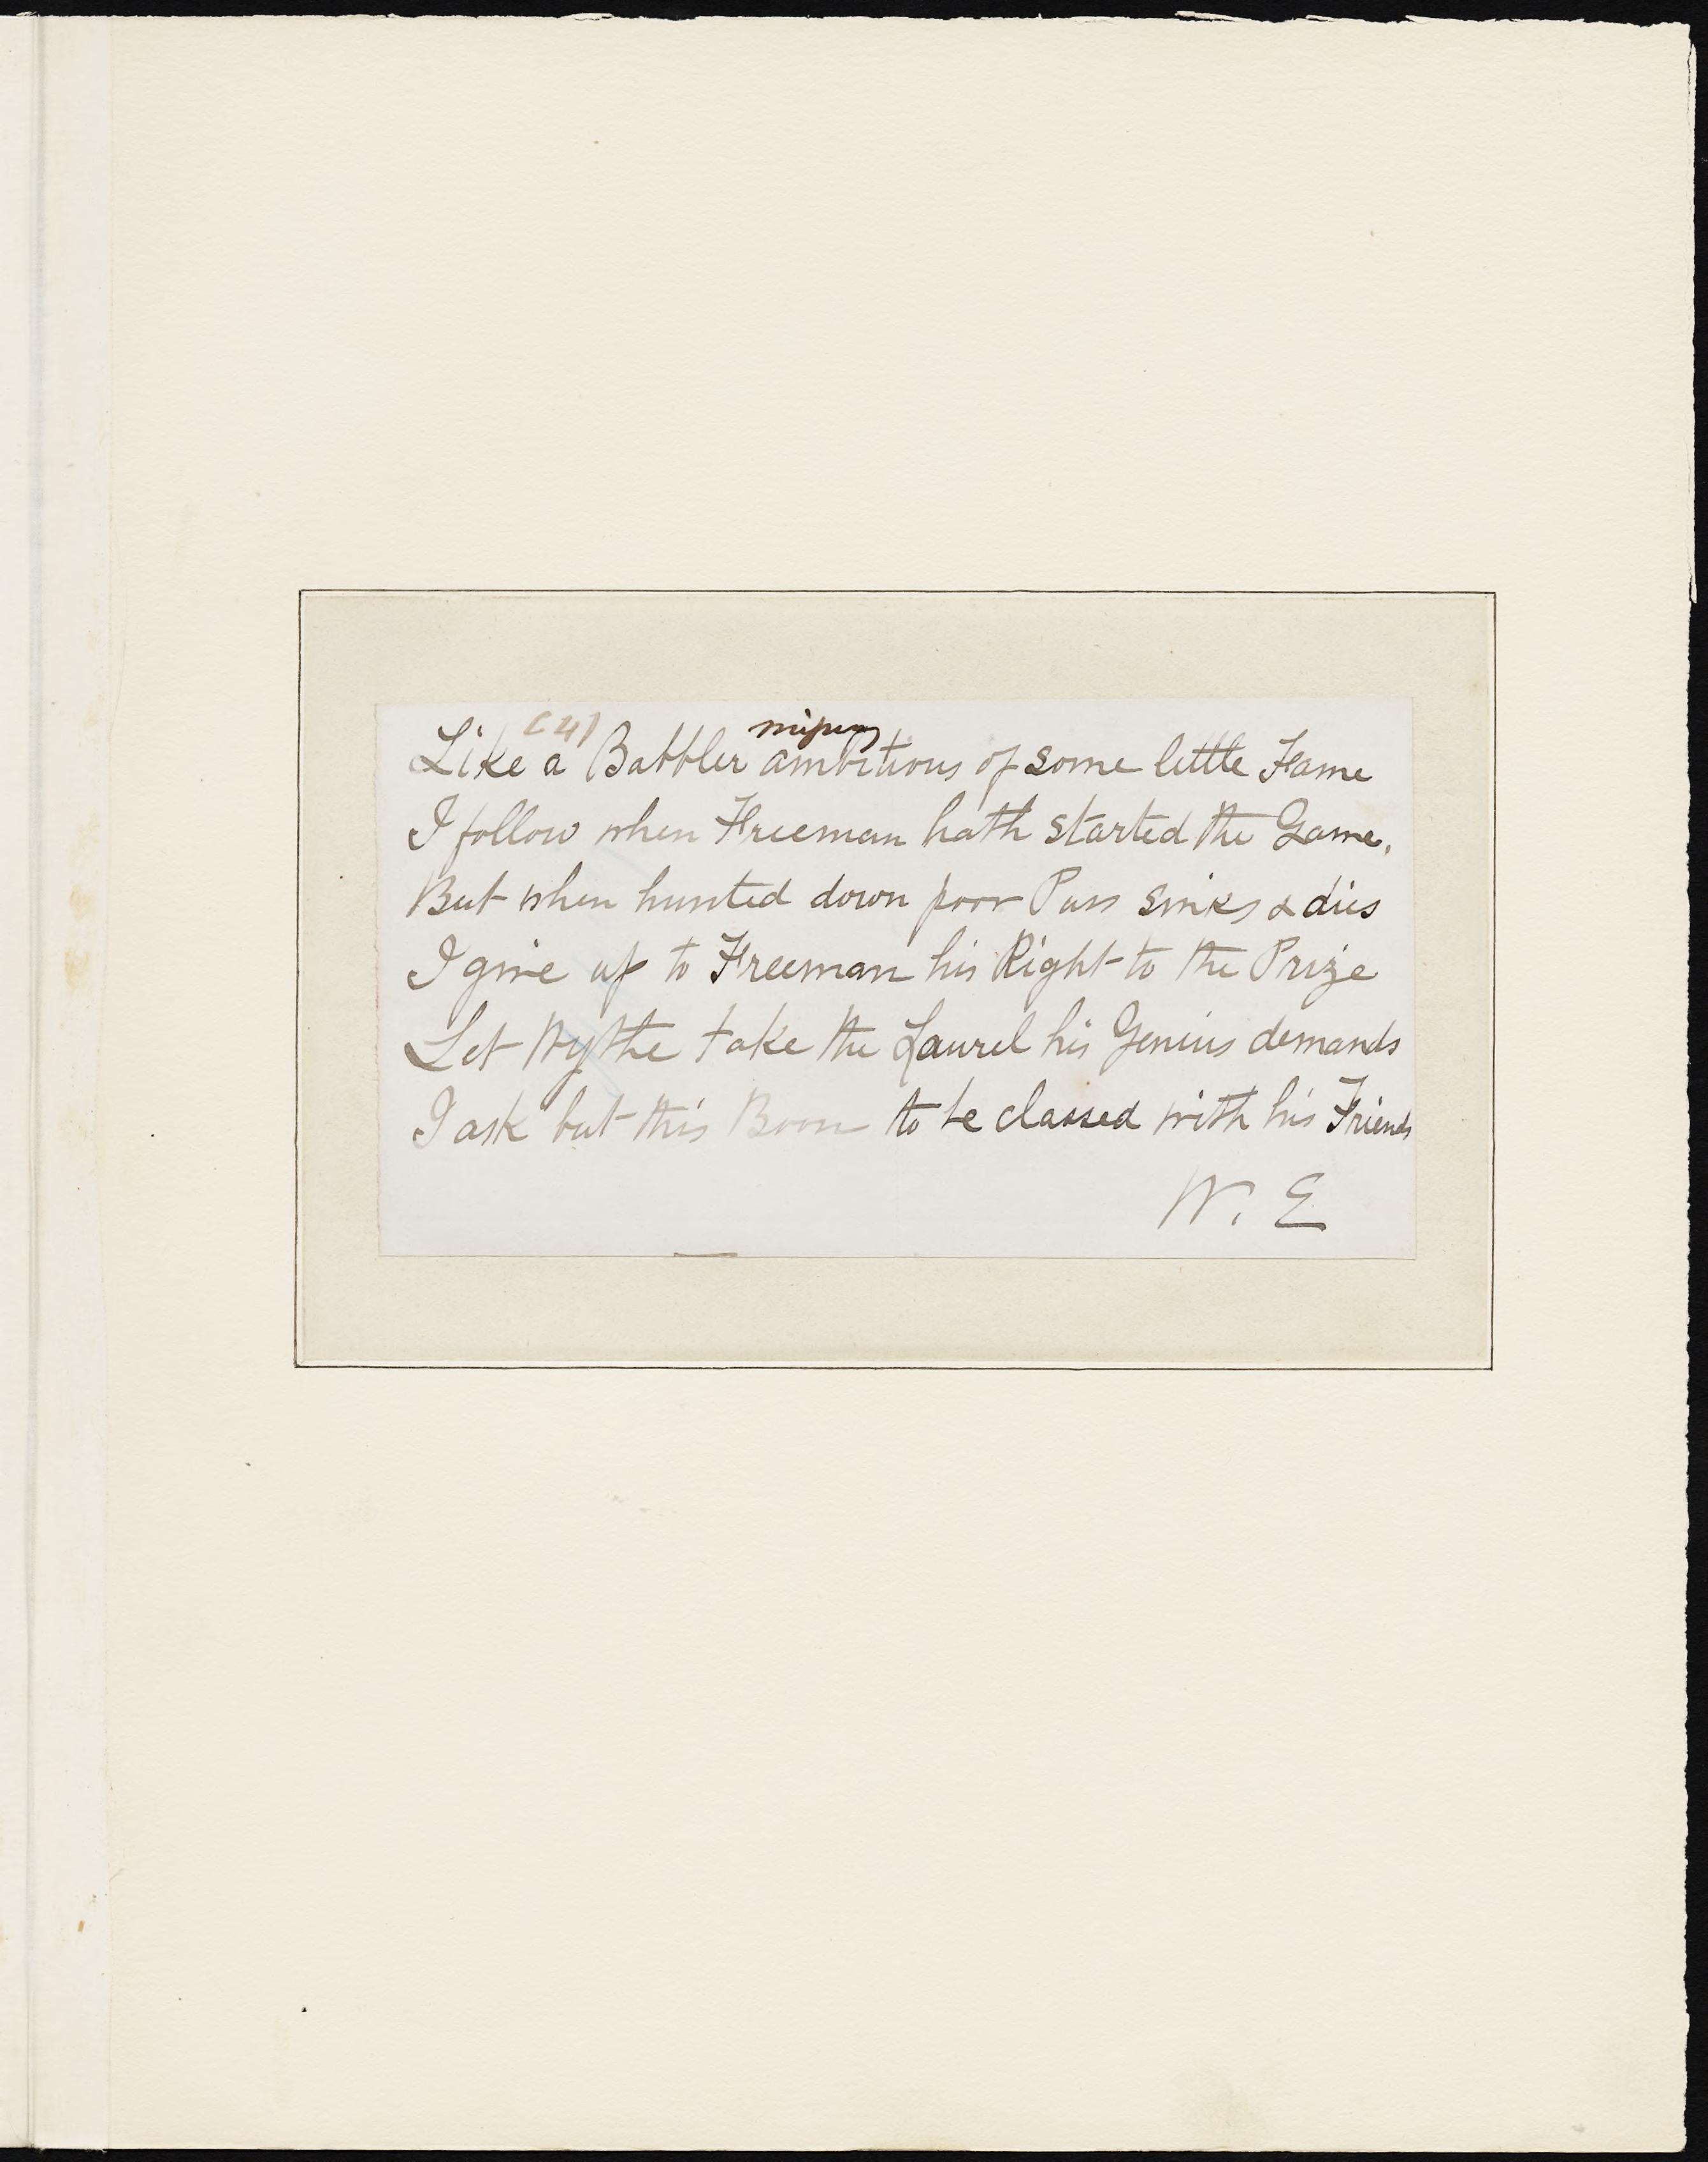 (4)
Like a Babbler ambitious of some little Fame
I follow when Freeman hath started the Game.
But when hunted down poor Puss sinks & dies
I give up to Freeman his Right to the Prize
Let Wythe take the Laurel his Genius demands
I ask but this Boon to be classed with his Friends
W. E